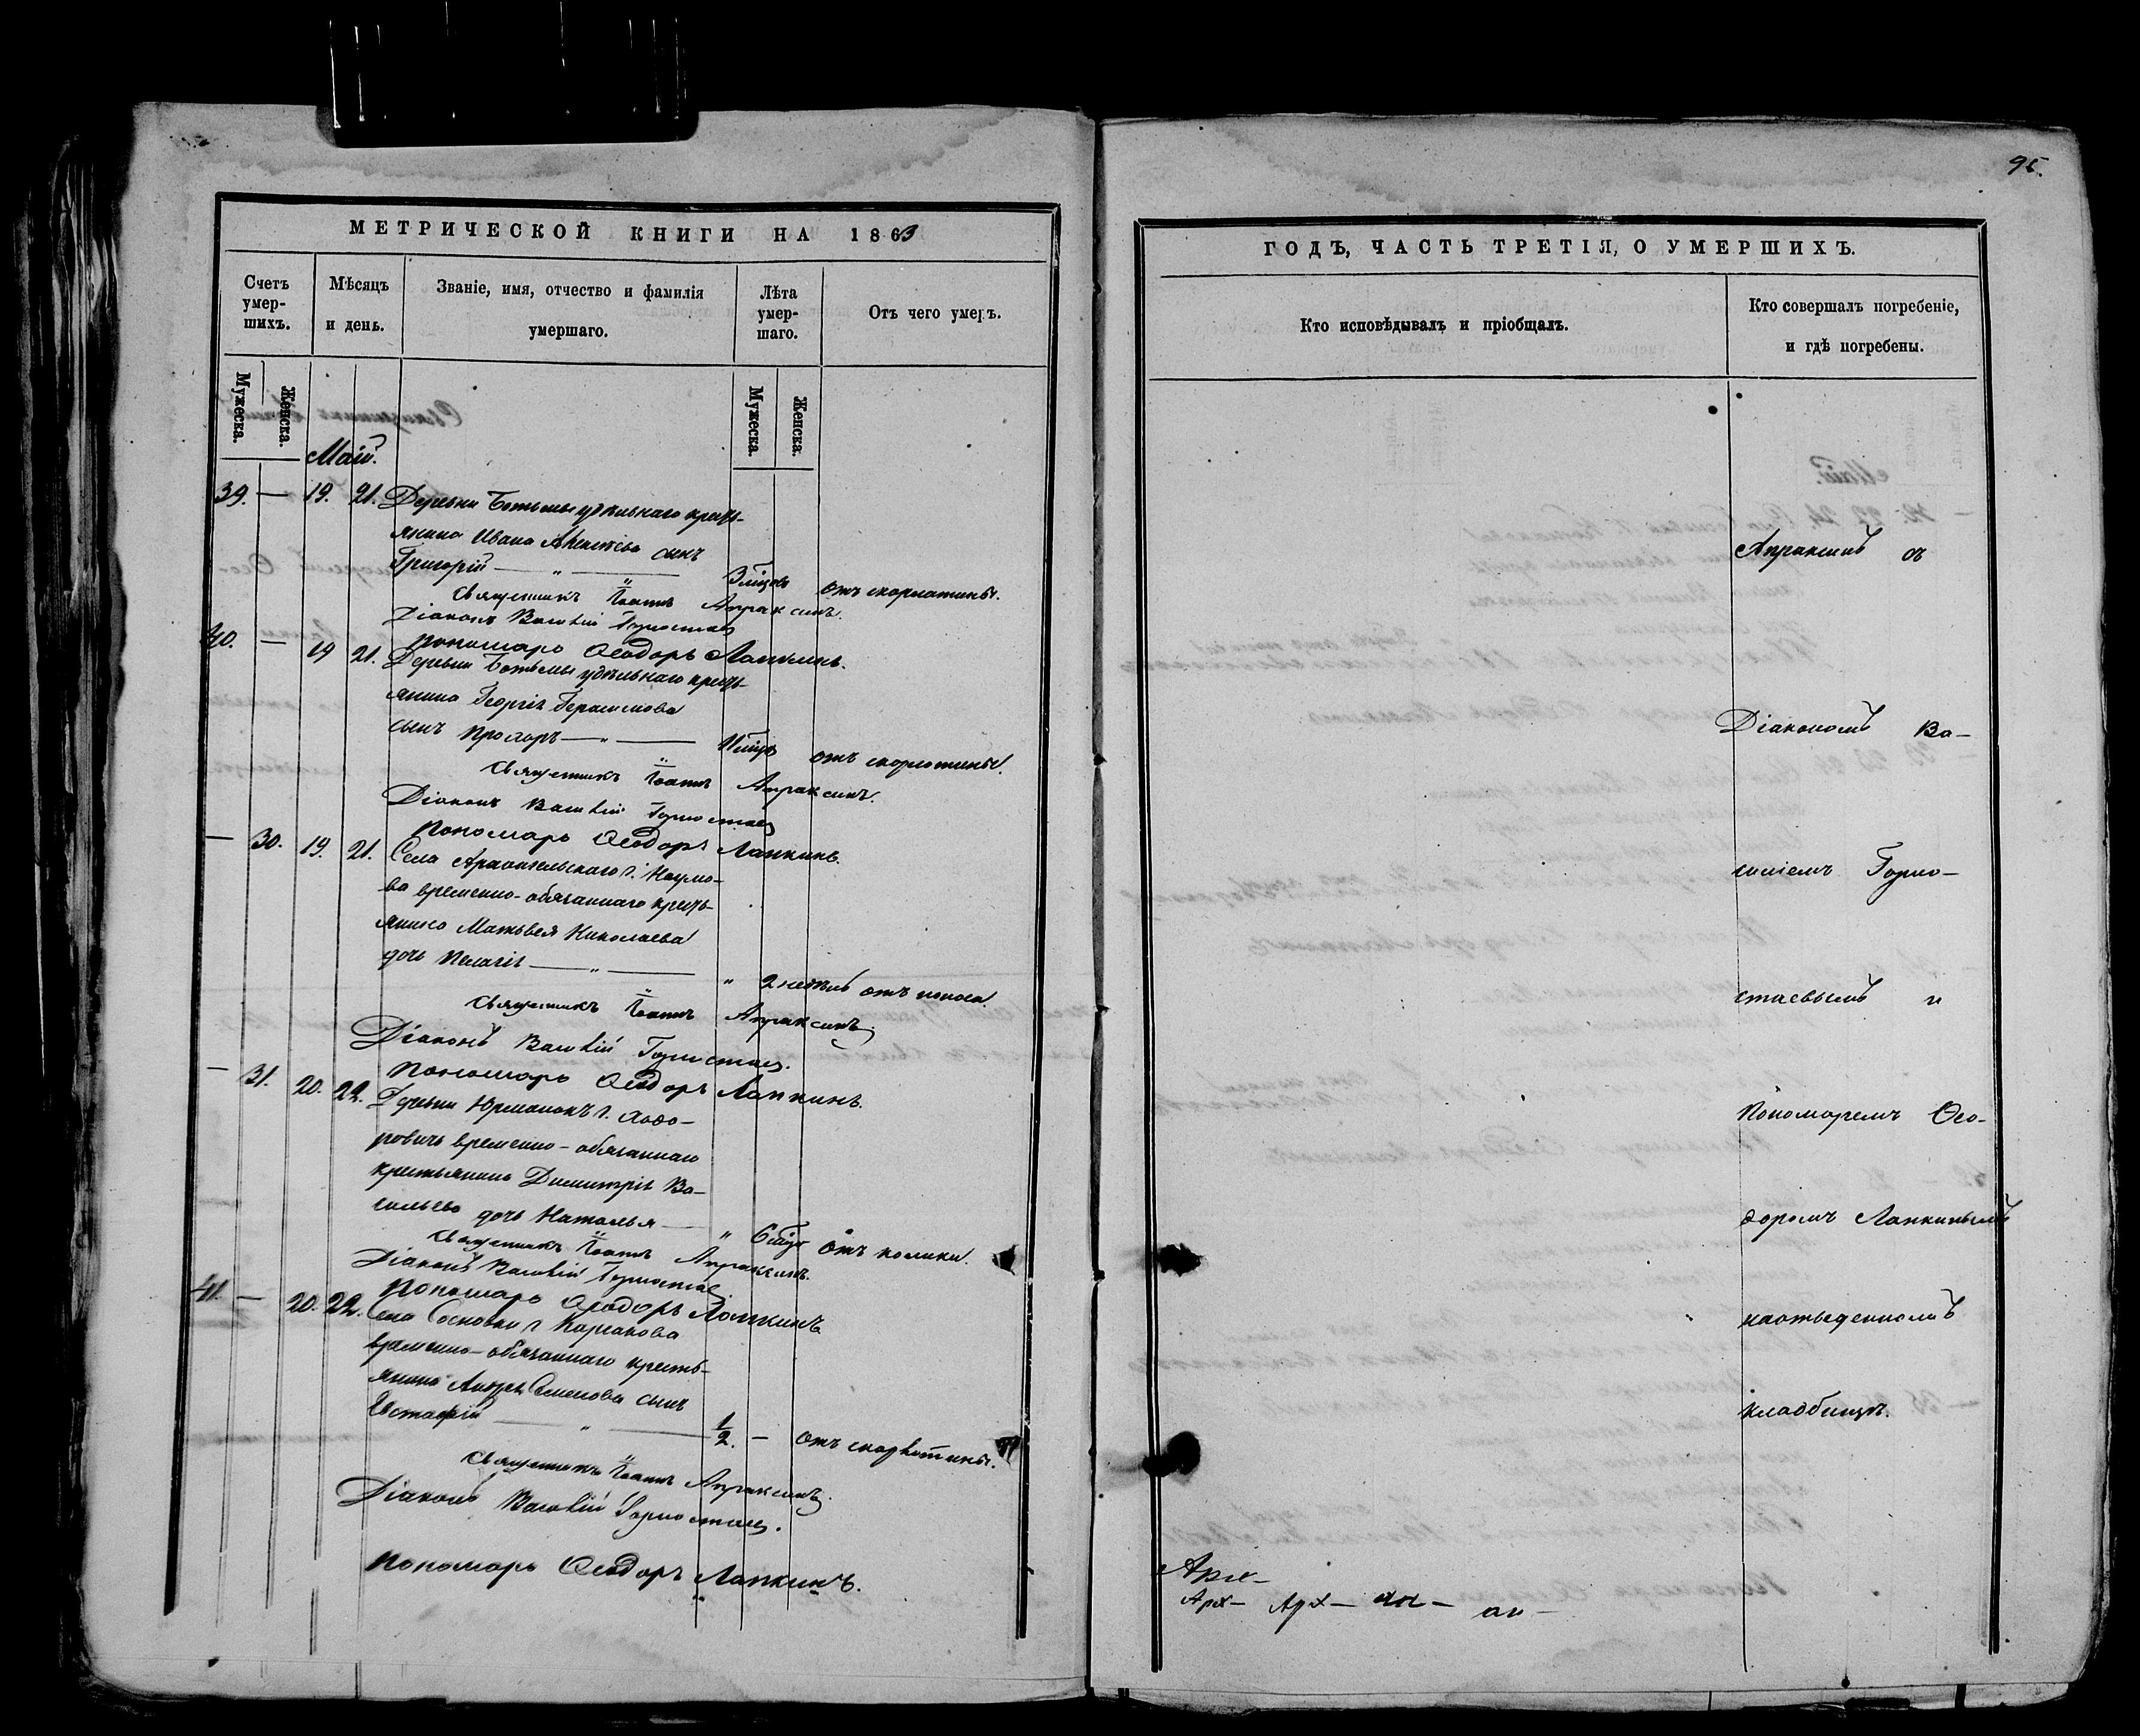 95.
МЕТРИЧЕСКОЙ КНИГИ НА 1863
Счетъ умершихъ.
Мужеска.
Женска.
Мѣсяцъ и день.
Званіе, имя, отчество и фамилія умершаго.
Лѣта умершаго.
Мужеска.
Женска.
Отъ чего умеръ.
Май.
39. — 19. 21. Деревни удѣльнаго кресть-
янина Ивана сынъ
Григорій — " — отъ скорлатины.
Священникъ Іоаннъ Апраксинъ.
Діаконъ Василій Горностаев
Пономарь Ѳеодоръ Лапкинъ.
40. — 19 21. Деревни удѣльнаго кресть-
янина Георгія Герасимова
сынъ Прохоръ — " — отъ скорлатины.
Священникъ Іоаннъ Апраксинъ.
Діаконъ Василій Горностаев
Пономарь Ѳеодоръ Лапкинъ.
— 30. 19. 21. Села Архангельскаго г. Наумо-
ва временно-обязаннаго кресть-
янина Матвея Николаева
дочь Пелагія — " — " 2 недѣль отъ поноса.
Священникъ Іоаннъ Апраксинъ.
Діаконъ Василій Горностаев.
Пономарь Ѳеодоръ Лапкинъ.
— 31. 20. 22. Деревни г. Ходо-
ровича временно-обязаннаго
крестьянина Димитрія Ва-
сильева дочь Наталья — " 6 отъ колики.
Священникъ Іоаннъ Апраксинъ.
Діаконъ Василій Горностаев
Пономарь Ѳеодоръ Лапкинъ
41. — 20. 22. Села Сосновки г.
временно-обязаннаго кресть-
янина Андрея Семенова сынъ
Евстафій — " — 1/2. — отъ скорлатины.
Священникъ Іоаннъ Апраксинъ.
Діаконъ Василій Горностаев.
Пономарь Ѳеодоръ Лапкинъ.
ГОДЪ, ЧАСТЬ ТРЕТІЯ, О УМЕРШИХЪ.
Кто исповѣдывалъ и пріобщалъ.
Кто совершалъ погребеніе,
и гдѣ погребены.
Апраксинъ съ
Діакономъ Ва-
силіемъ Горно-
стаевымъ и
Пономаремъ Ѳео-
доромъ Лапкинымъ
на отведенномъ
кладбищѣ.
Арх-
Арх- Арх-